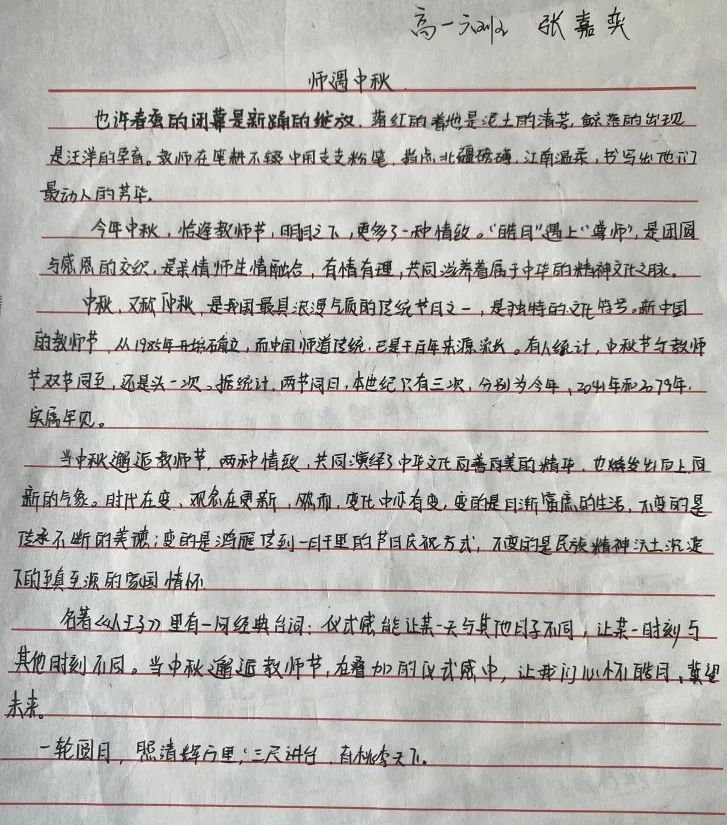 高一六班 张嘉奕
师遇中秋
也许春蚕的闭幕是新踊的绽放，落红的着地是泥土的清芳，鲸落的出现
是汪洋的孕育。教师在笔耕不辍中用支支粉笔，指点北疆磅礴，江南温柔，书写出他们
最动人的芳华。
今年中秋，恰逢教师节，明月之下，更多了一种情致。“皓月”遇上“尊师”，是团圆
与感恩的交织，是亲情师生情融合，有情有理，共同滋养着属于中华的精神文化之脉。
中秋，又称仲秋，是我国最具浪漫气质的传统节日之一，是独特的文化符号。新中国
的教师节，从1985年开始确立，而中国师道传统，已是千百年来源流长。有人统计，中秋节与教师
节双节同至，还是头一次。据统计，两节同日，本世纪只有三次，分别为今年，2041年和2079年，
实属罕见。
当中秋邂逅教师节，两种情致，共同演绎了中华文化向善向美的精华，也焕发出向上向
新的气象。时代在变，观念在更新，然而，变化中亦有变，变的是日渐富庶的生活，不变的是
传承不断的美德；变的是鸿雁传到一日千里的节日庆祝方式，不变的是民族精神沃土沉淀
下的至真至深的家国情怀
名著《小王子》里有一句经典台词：仪式感能让某一天与其他日子不同，让某一时刻与
其他时刻不同。当中秋邂逅教师节，在叠加的仪式感中，让我们心怀皓月，冀望
未来。
一轮圆月，照清辉万里；三尺讲台，育桃李天下。